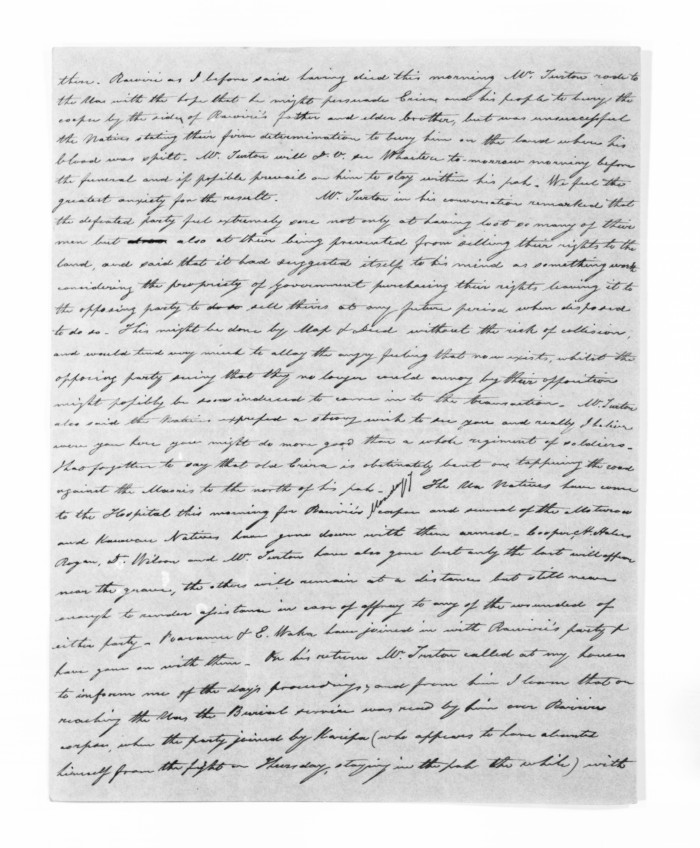 then. Rawiri as I before said having died this morning Mr. Turton rode to
the Ua with the hope that he might persuade Erira and his people to bury the
corpse by the side of Rawiri's father and elder brother, but was unsuccessful
the Natives stating their firm determination to bury him on the land where his
blood was spilt. Mr. Turton will D.V. see Whaitere to-morrow morning before
the funeral and if possible prevail on him to stay within his pah. We feel the
greatest anxiety for the result. Mr. Turton in his conversation remarked that
the defeated party feel extremely sore not only at having lost so many of their
men but also at their being prevented from selling their rights to the
land, and said that it had suggested itself to his mind as something worth
considering the propriety of Government purchasing their rights leaving it to
the opposing party to do so sell theirs at any future period when disposed
to do so. This might be done by Map & Deed without the risk of collision,
and would tend very much to allay the angry feeling that now exists, whilst the
opposing party seeing that they no longer could annoy by their opposition
might possibly be soon induced to come in to the transaction. Mr. Turton
also said the Natives expressed a strong wish to see you and really I believe
were you here you might do more good than a whole regiment of soldiers.
I had forgotten to say that old Erira is obstinately bent on tappuing the road
against the Maoris to the north of his pah. Monday The Ua Natives have come
to the Hospital this morning for Rawiri's corpse and several of the Moturoa
and Kawau Natives have gone down with them armed. Cooper, H. Halse
Rogan, Dr. Wilson and Mr. Turton have also gone but only the last will appear
near the grave, the others will remain at a distance but still near
enough to render assistance in case of affray to any of the wounded of
either party. & E. Waka have joined in with Rawiri's party &
have gone on with them. On his return Mr. Turton called at my house
to inform me of the day's proceedings, and from him I learn that on
reaching the Ua the Burial service was read by him over Rawiri's
corpse, when the party joined by Karipa (who appears to have absented
himself from the fight on Thursday, staying in the pah the while) with